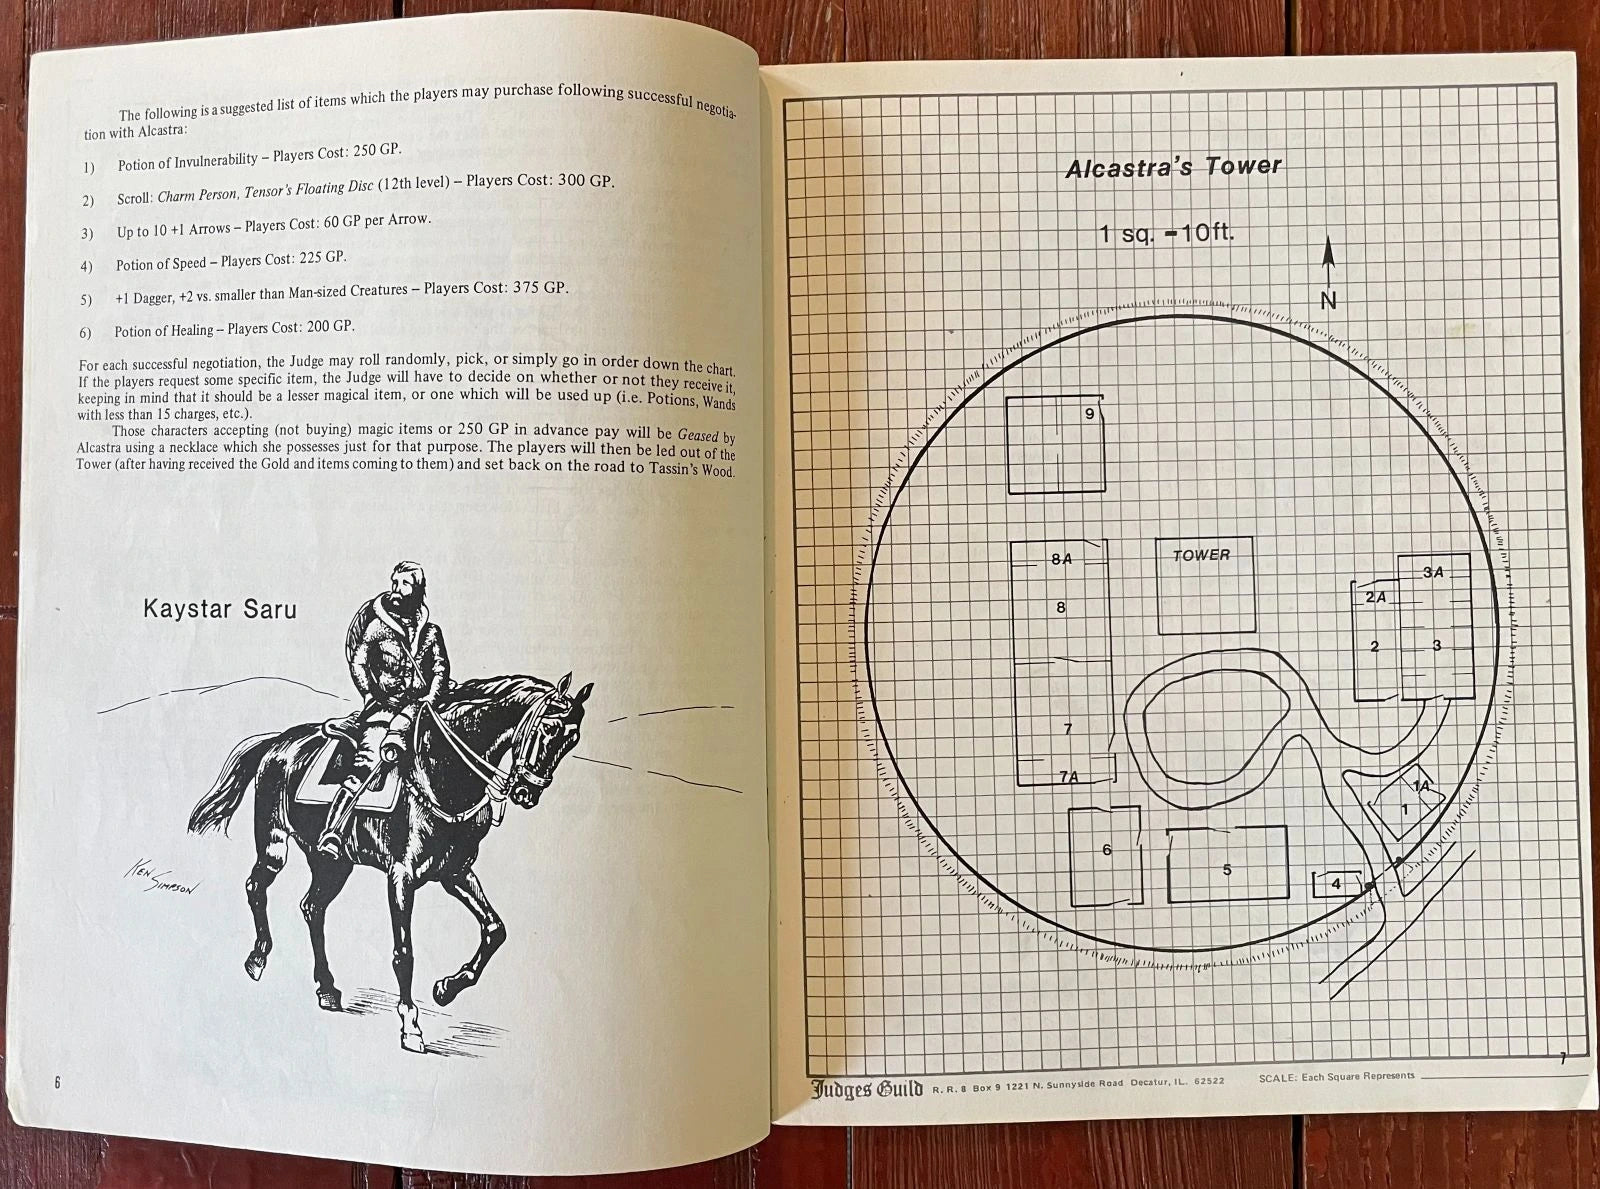 The following is a suggested list of items which the players may purchase following successful negotia-
tion with Alcastra:
1) Potion of Invulnerability – Players Cost: 250 GP.
2) Scroll: Charm Person, Tensor's Floating Disc (12th level) – Players Cost: 300 GP.
3) Up to 10 +1 Arrows – Players Cost: 60 GP per Arrow.
4) Potion of Speed – Players Cost: 225 GP.
5) +1 Dagger, +2 vs. smaller than Man-sized Creatures – Players Cost: 375 GP.
6) Potion of Healing – Players Cost: 200 GP.
For each successful negotiation, the Judge may roll randomly, pick, or simply go in order down the chart.
If the players request some specific item, the Judge will have to decide on whether or not they receive it,
keeping in mind that it should be a lesser magical item, or one which will be used up (i.e. Potions, Wands
with less than 15 charges, etc.).
Those characters accepting (not buying) magic items or 250 GP in advance pay will be Geased by
Alcastra using a necklace which she possesses just for that purpose. The players will then be led out of the
Tower (after having received the Gold and items coming to them) and set back on the road to Tassin's Wood.
Kaystar Saru
KEN
SIMPSON
6
Alcastra's Tower
1 sq. - 10ft.
N
9
8A
TOWER
3A
2A
8
2
3
7
7A
1A
1
6
5
4
7
Judges Guild R. R. 8 Box 9 1221 N. Sunnyside Road Decatur, IL. 62522 SCALE: Each Square Represents